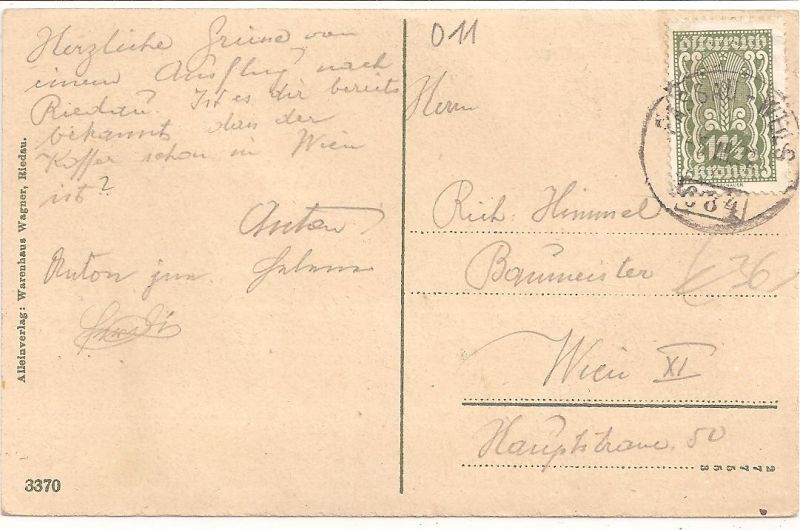 Herzliche Grüsse von
einem Ausflug nach
Riedau. Ist es dir bereits
bekannt dass der
Koffer schon in Wien
ist?
Anton
Anton jun.
Alleinverlag: Warenhaus Wagner, Riedau.
3370
011
Herrn
Rich. Himmel
Baumeister
36
Wien XI
Hauptstrasse 50
27553
Österreich
12½
Kronen
WELS